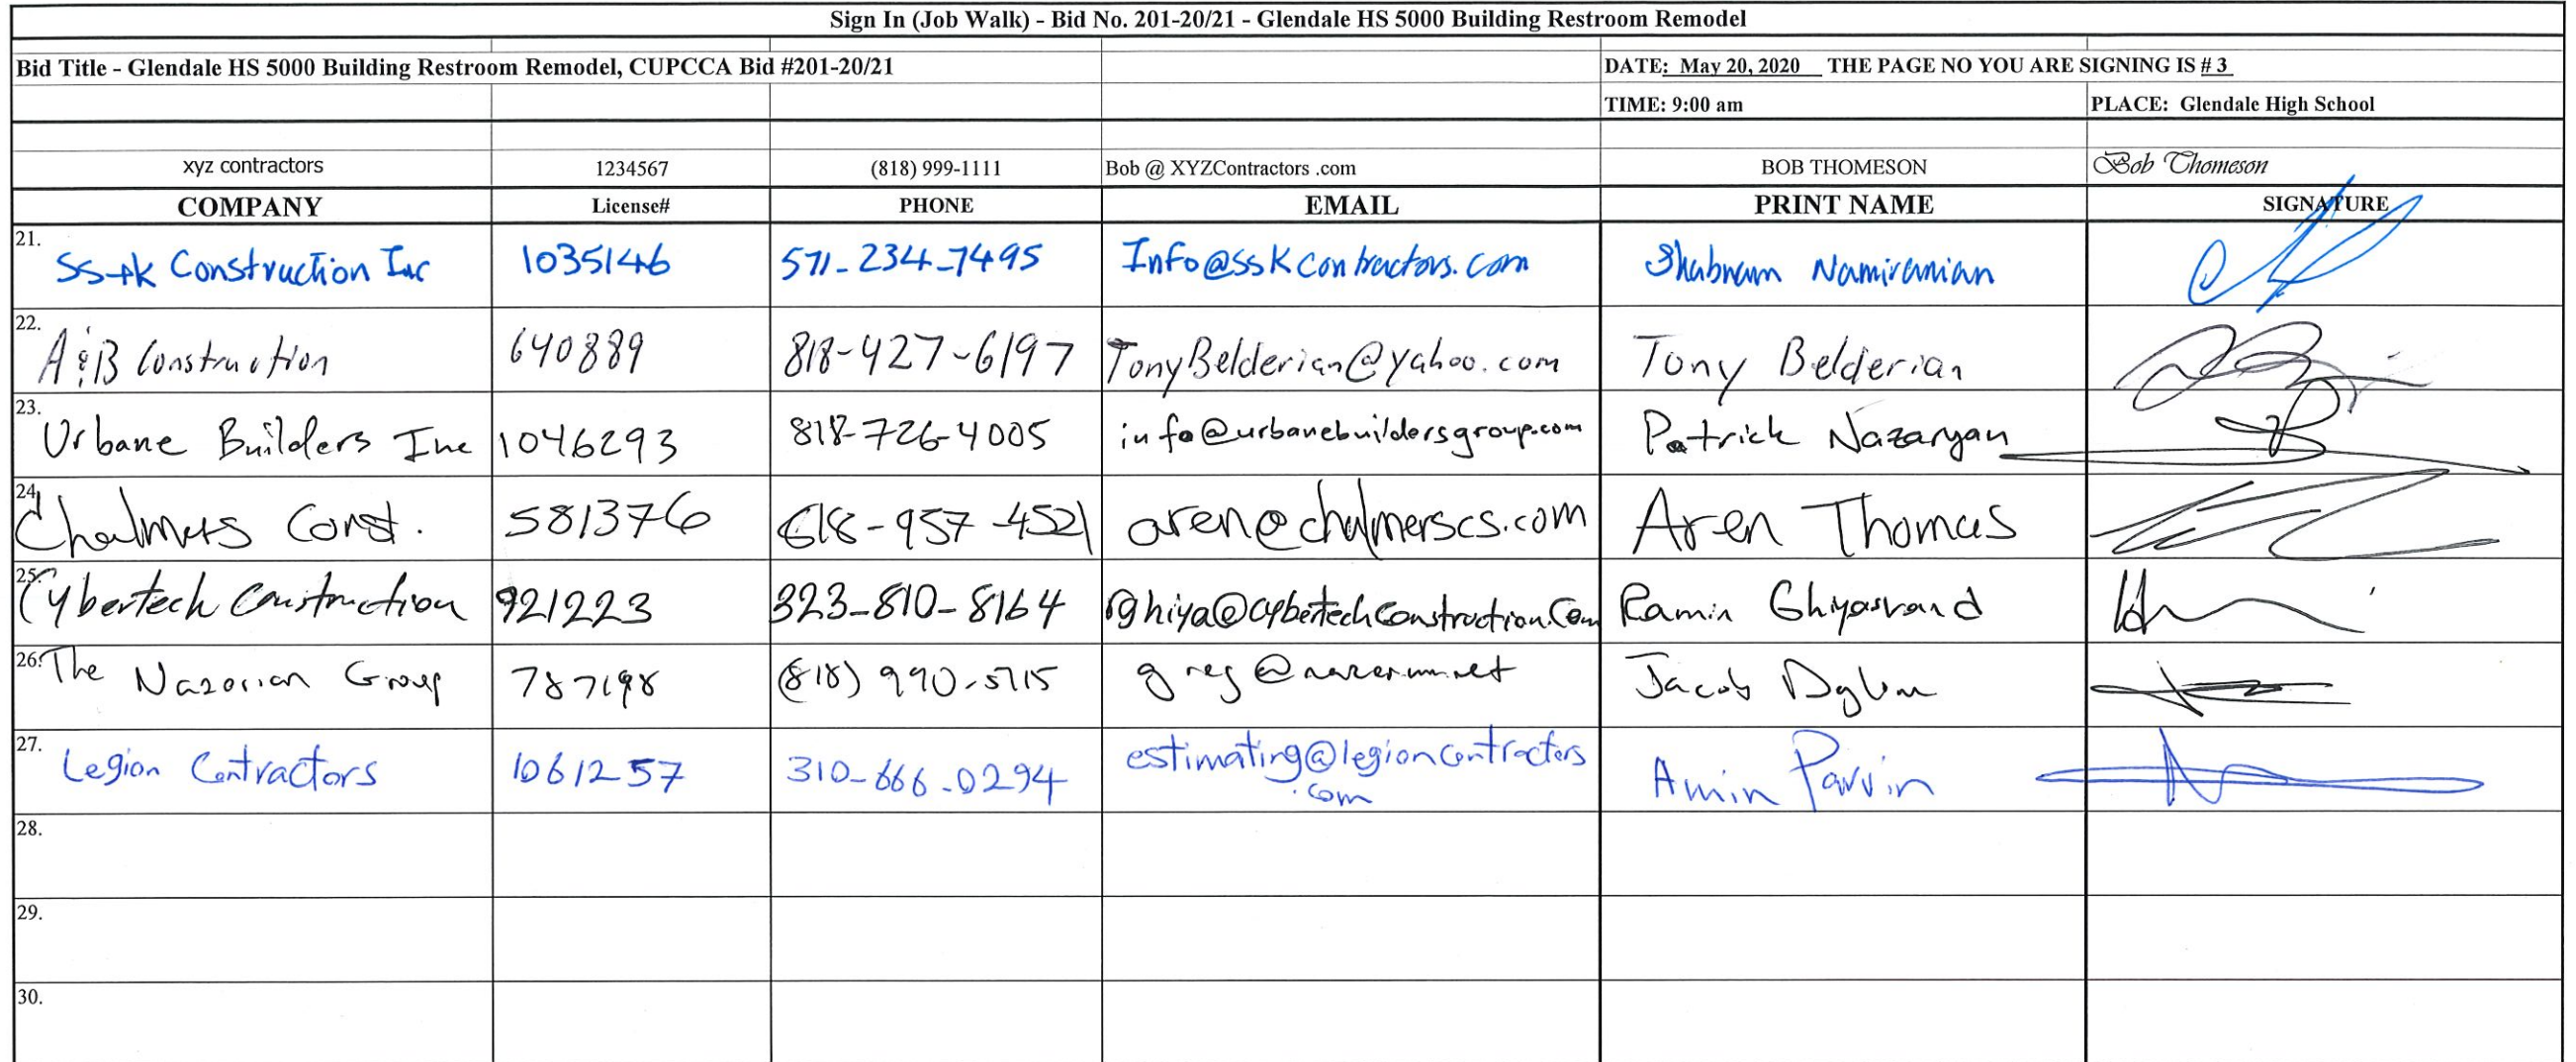 Sign In (Job Walk) - Bid No. 201-20/21 - Glendale HS 5000 Building Restroom Remodel
Bid Title - Glendale HS 5000 Building Restroom Remodel, CUPCCA Bid #201-20/21 DATE: May 20, 2020 THE PAGE NO YOU ARE SIGNING IS # 3
TIME: 9:00 am PLACE: Glendale High School
xyz contractors 1234567 (818) 999-1111 Bob @ XYZContractors .com BOB THOMESON Bob Thomeson
COMPANY License# PHONE EMAIL PRINT NAME SIGNATURE
21. SS+K Construction Inc 1035146 571-234-7495 Info@sskcontractors.com Shabnam Namiranian
22. A&B Construction 640889 818-427-6197 TonyBelderian@yahoo.com Tony Belderian
23. Urbane Builders Inc 1046293 818-726-4005 info@urbanebuildersgroup.com Patrick Nazaryan
24. Chalmers Const. 581376 818-957-4521 aren@chalmerscs.com Aren Thomas
25. Cybertech Construction 921223 323-810-8164 rghiya@cybertechconstruction.com Ramin Ghiyasvand
26. The Nazorian Group 787198 (818) 990-5715 Jacob
27. Legion Contractors 1061257 310-666-0294 estimating@legioncontractors Amin Parvin
.com
28.
29.
30.